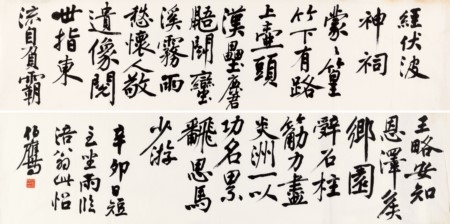 經伏波
神祠
蒙〻篁
竹下有路
上壺頭
漢壘麏
鼯鬭蠻
溪霧雨
愁懷人敬
遺像閱
世指東
流自負霸
王略安知
恩澤矦
鄉園
辭石柱
筋力盡
炎洲一以
功名累
飜思馬
少游
辛卯日短
至坐雨臨
涪翁此帖
伯鷹